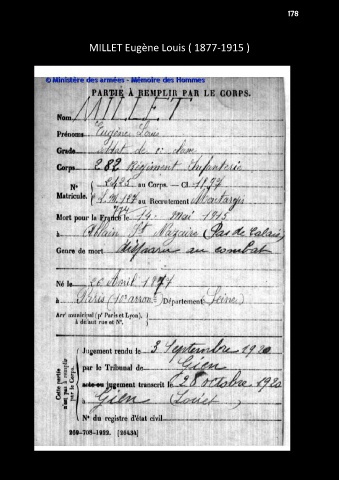 178
MILLET Eugène Louis ( 1877-1915 )
© Ministère des armées - Mémoire des Hommes
PARTIE À REMPLIR PAR LE CORPS.
Nom MILLET
Prénoms Eugène Louis
Grade Soldat de 2e classe
Corps 282 Régiment Infanterie
N° au Corps. — Cl. 1897
Matricule. au Recrutement Montargis
Mort pour la France le 14 Mai 1915
à Ablain St Nazaire (Pas de Calais)
Genre de mort disparu au combat
Né le 20 Avril 1877
à Paris (10 arrond) Département Seine
Arr<sup>t</sup> municipal (p<sup>r</sup> Paris et Lyon),
à défaut rue et N°.
Cette partie n'est pas à remplir par le Corps.
Jugement rendu le 3 Septembre 1920
par le Tribunal de Gien
acte ou jugement transcrit le 28 octobre 1920
à Gien (Loiret)
N° du registre d'état civil
260-708-1922. [26434]